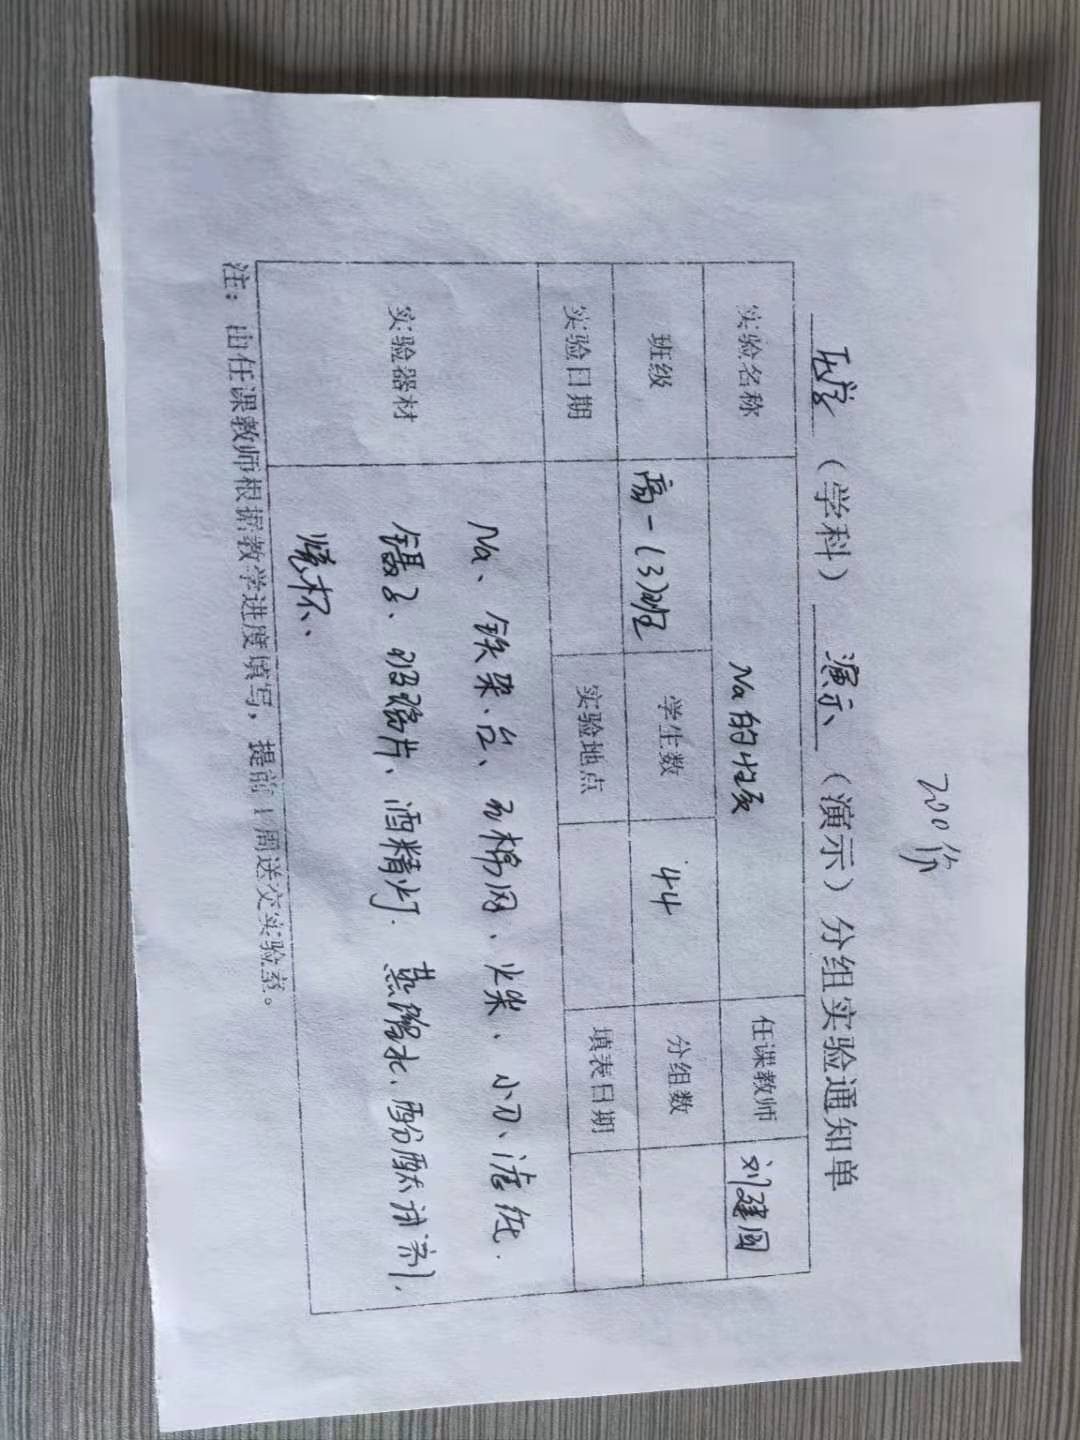 200份
化学（学科）演示（演示）分组实验通知单
实验名称 Na的性质 任课教师 刘建国
班级 高一(3)班 学生数 44 分组数
实验日期 实验地点 填表日期
实验器材 Na、铁架台、石棉网、火柴、小刀、滤纸.
镊子、玻璃片、酒精灯. 蒸馏水、酚酞试剂、
烧杯、
注：由任课教师根据教学进度填写，提前1周送交实验室。